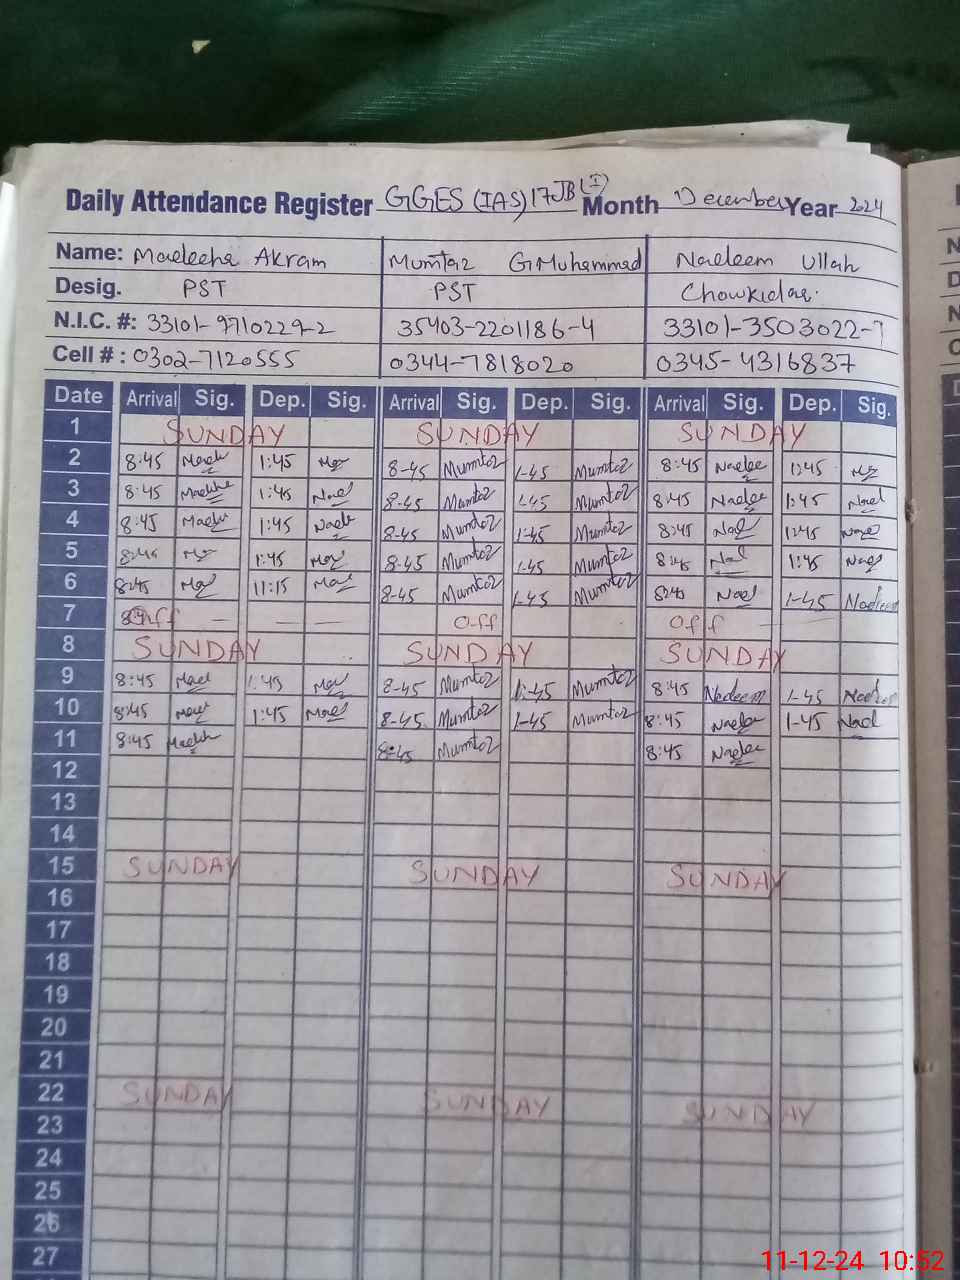 Daily Attendance Register GGES (IAS) 17JB (I) Month December Year 2024
Name: Madeeha Akram Mumtaz G Muhammad Nadeem Ullah
Desig. PST PST Chowkidar.
N.I.C. #: 33101-9710229-2 35403-2201186-4 33101-3503022-7
Cell # : 0302-7120555 0344-7818020 0345-4316837
Date Arrival Sig. Dep. Sig. Arrival Sig. Dep. Sig. Arrival Sig. Dep. Sig.
1 SUNDAY SUNDAY SUNDAY
2 8:45 1:45 8-45 Mumtaz 1-45 Mumtaz 8:45 1:45
3 8:45 1:45 8-45 Mumtaz 1-45 Mumtaz 8:45 1:45
4 8:45 1:45 8-45 Mumtaz 1-45 Mumtaz 8:45 1:45
5 8:45 1:45 8-45 Mumtaz 1-45 Mumtaz 8:45 1:45
6 8:45 11:15 8-45 Mumtaz 1-45 Mumtaz 8:45 1-45 Nadeem
7 Off Off Off
8 SUNDAY SUNDAY SUNDAY
9 8:45 1:45 8-45 Mumtaz 1:-45 Mumtaz 8:45 Nadeem 1-45 Nadeem
10 8:45 1:45 8-45 Mumtaz 1-45 Mumtaz 8:45 1-45
11 8:45 8-45 Mumtaz 8:45
12
13
14
15 SUNDAY SUNDAY SUNDAY
16
17
18
19
20
21
22 SUNDAY SUNDAY SUNDAY
23
24
25
26
27
11-12-24 10:52